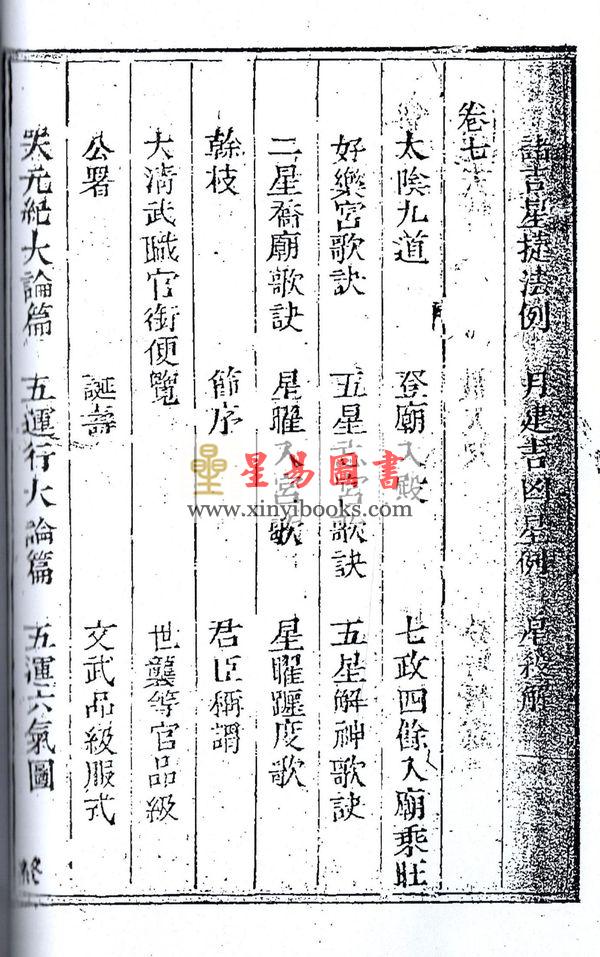 諸吉星捷法例　月建吉凶星例　星煞解
卷七
太陰九道　登廟入殿　七政四餘入廟乘旺
好樂宮歌訣　五星 宮歌訣　五星解神歌訣
二星喬廟歌訣　星曜入宮歌　星曜躔度歌
榦枝　節序　君臣稱謂
大清武職官銜便覽　世襲等官品級
公署　誕壽　文武品級服式
天元紀大論篇　五運行大論篇　五運六氣圖
星易圖書
www.xinyibooks.com